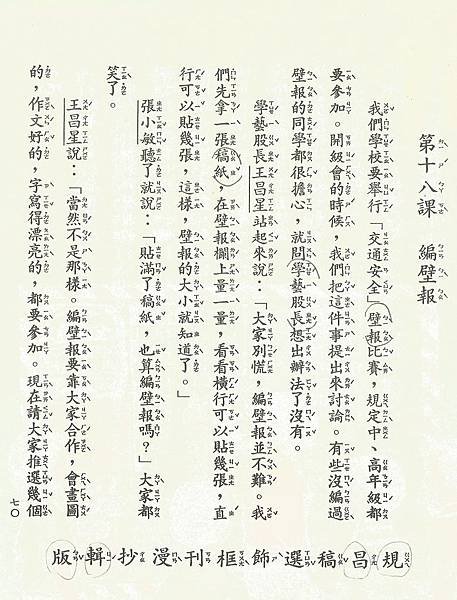 第十八課　編壁報
我們學校要舉行「交通安全」壁報比賽，規定中、高年級都
要參加。開級會的時候，我們把這件事提出來討論。有些沒編過
壁報的同學都很擔心，就問學藝股長想出辦法了沒有。
學藝股長王昌星站起來說：「大家別慌，編壁報並不難。我
們先拿一張稿紙，在壁報欄上量一量，看看橫行可以貼幾張，直
行可以貼幾張，這樣，壁報的大小就知道了。」
張小敏聽了就說：「貼滿了稿紙，也算編壁報嗎？」大家都
笑了。
王昌星說：「當然不是那樣。編壁報要靠大家合作，會畫圖
的，作文好的，字寫得漂亮的，都要參加。現在請大家推選幾個
七〇
規昌稿選飾框刊漫抄輯版